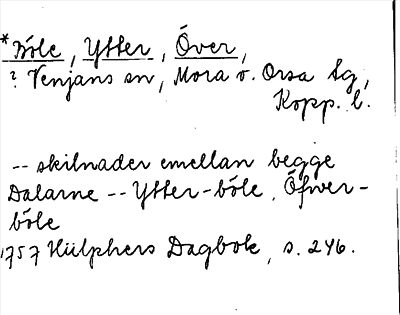 *Böle, Ytter, Över,
? Venjans sn, Mora o. Orsa tg,
Kopp. l.
-- skilnader emellan begge
Dalarne -- Ytter-böle, Öfwer-
böle
1757 Hülphers Dagbok, s. 246.